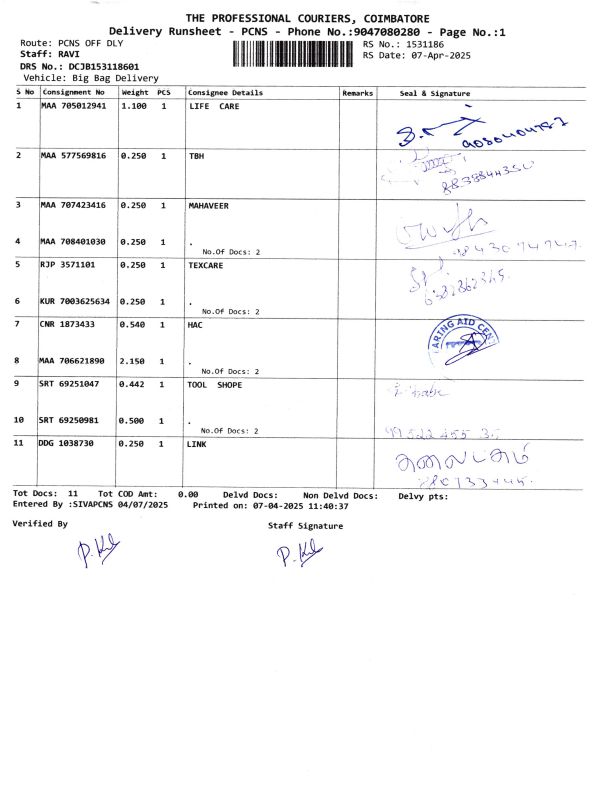 THE PROFESSIONAL COURIERS, COIMBATORE
Delivery Runsheet - PCNS - Phone No.:9047080280 - Page No.:1
Route: PCNS OFF DLY RS No.: 1531186
Staff: RAVI RS Date: 07-Apr-2025
DRS No.: DCJB153118601
Vehicle: Big Bag Delivery
S No Consignment No Weight PCS Consignee Details Remarks Seal & Signature
1 MAA 705012941 1.100 1 LIFE CARE
2 MAA 577569816 0.250 1 TBH
3 MAA 707423416 0.250 1 MAHAVEER
4 MAA 708401030 0.250 1 .
No.Of Docs: 2
5 RJP 3571101 0.250 1 TEXCARE
6 KUR 7003625634 0.250 1 .
No.Of Docs: 2
7 CNR 1873433 0.540 1 HAC
ARING AID CENT
8 MAA 706621890 2.150 1 .
No.Of Docs: 2
9 SRT 69251047 0.442 1 TOOL SHOPE
10 SRT 69250981 0.500 1 .
No.Of Docs: 2
11 DDG 1038730 0.250 1 LINK
Tot Docs: 11 Tot COD Amt: 0.00 Delvd Docs: Non Delvd Docs: Delvy pts:
Entered By :SIVAPCNS 04/07/2025 Printed on: 07-04-2025 11:40:37
Verified By Staff Signature